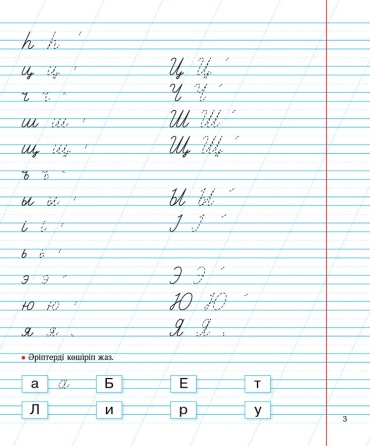 һ һ
ц ц Ц Ц
ч ч Ч Ч
ш ш Ш Ш
щ щ Щ Щ
ъ ъ
ы ы Ы Ы
і і І І
ь ь
э э Э Э
ю ю Ю Ю
я я Я Я
Әріптерді көшіріп жаз.
а а Б Е т
Л и р у
3